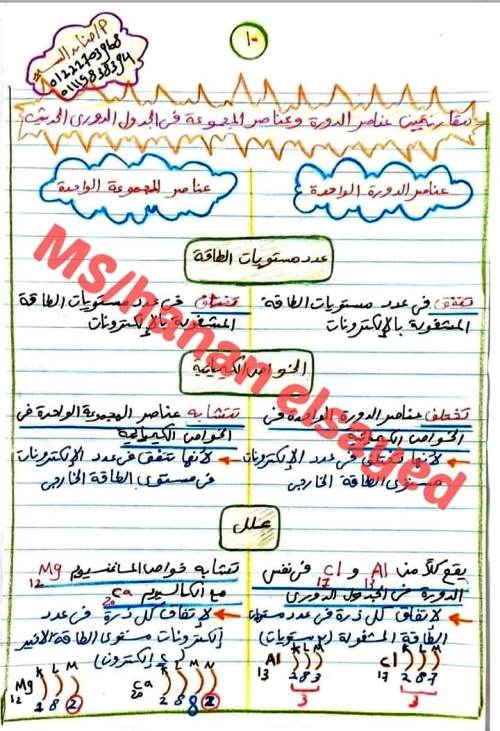 ١٠
م/حنان السيد
01222703968
01115838394
مقارنة بين عناصر الدورة وعناصر المجموعة فى الجدول الدورى الحديث
عناصر الدورة الواحدة
عناصر المجموعة الواحدة
عدد مستويات الطاقة
تتفق فى عدد مستويات الطاقة
المشغولة بالإلكترونات
تختلف فى عدد مستويات الطاقة
المشغولة بالإلكترونات
الخواص الكيميائية
تختلف عناصر الدورة الواحدة فى
الخواص الكيميائية
لأنها تختلف فى عدد الإلكترونات
مستوى الطاقة الخارجى
تتشابه عناصر المجموعة الواحدة فى
الخواص الكيميائية
لأنها تتفق فى عدد الإلكترونات
فى مستوى الطاقة الخارجى
علل
يقع كلاً من 13Al و 17Cl فى نفس
الدورة فى الجدول الدورى
لإتفاق كل ذرة فى عدد مستويات
الطاقة المشغولة (٣ مستويات)
K L M
Al
13
2 8 3
3
K L M
Cl
17
2 8 7
3
تتشابه خواص الماغنسيوم 12Mg
مع الكالسيوم 20Ca
لإتفاق كل ذرة فى عدد
إلكترونات مستوى الطاقة الأخير
(٢ إلكترون)
K L M
Mg
12
2 8 2
K L M N
Ca
20
2 8 8 2
MS/hanan elsayed